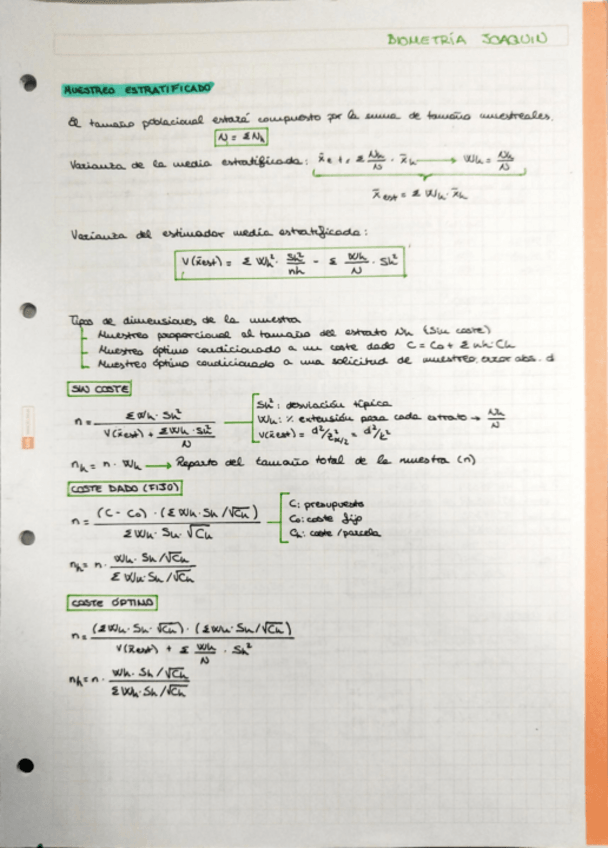 BIOMETRÍA JOAQUIN
MUESTREO ESTRATIFICADO
El tamaño poblacional estará compuesto por la suma de tamaños muestreales.
N = Σ Nh
Varianza de la media estratificada: x̄est = Σ Nh/N · x̄h → Wh = Nh/N
x̄est = Σ Wh · x̄h
Varianza del estimador media estratificada:
V(x̄est) = Σ Wh² · Sh²/nh - Σ Wh/N · Sh²
Tipos de dimensiones de la muestra
Muestreo proporcional al tamaño del estrato Nh (Sin coste)
Muestreo óptimo condicionado a un coste dado C = Co + Σ nh·Ch
Muestreo óptimo condicionado a una solicitud de muestreo, error abs. d
SIN COSTE
n = Σ Wh · Sh² / (V(x̄est) + Σ Wh · Sh²/N)
Sh²: desviación típica
Wh: % extensión para cada estrato → Nh/N
V(x̄est) = d²/z²α/2 = d²/t²
nh = n · Wh → Reparto del tamaño total de la muestra (n)
COSTE DADO (FIJO)
n = (C - Co) · (Σ Wh · Sh / √Ch) / Σ Wh · Sh · √Ch
C: presupuesto
Co: coste fijo
Ch: coste / parcela
nh = n · Wh · Sh / √Ch / Σ Wh · Sh / √Ch
COSTE ÓPTIMO
n = (Σ Wh · Sh · √Ch) · (Σ Wh · Sh / √Ch) / V(x̄est) + Σ Wh/N · Sh²
nh = n · Wh · Sh / √Ch / Σ Wh · Sh / √Ch